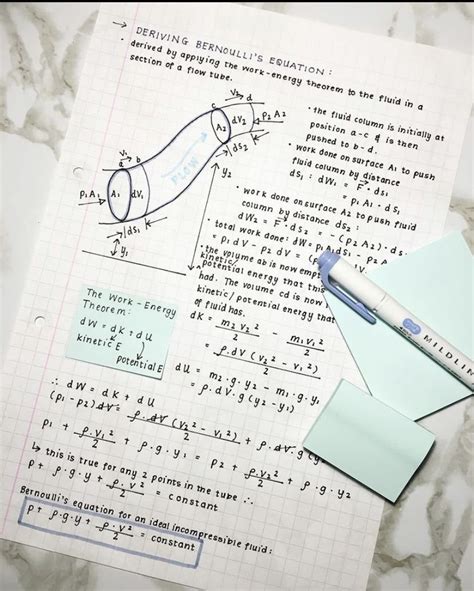 → DERIVING BERNOULLI'S EQUATION:
• derived by applying the work-energy theorem to the fluid in a
section of a flow tube.
c V₂ d
A₂ dV₂ P₂A₂
ds₂
V₁
a b
P₁A₁ A₁ dV₁
ds₁
FLOW
y₂
y₁
• the fluid column is initially at
position a-c & is then
pushed to b-d.
• work done on surface A₁ to push
fluid column by distance
ds₁ : dW₁ = F · ds₁
= P₁ A₁ · ds₁
• work done on surface A₂ to push fluid
column by distance ds₂ :
dW₂ = F · ds₂ = -(P₂A₂) · ds
• total work done: dW = P₁A₁ds₁ - P₂A
= P₁dV - P₂dV = (P₁
• the volume ab is now emp
kinetic/
potential energy that this
had. The volume cd is now
kinetic/potential energy that
of fluid has.
The Work-Energy
Theorem:
dW = dK + dU
kinetic E
potential E
dK = m₂v₂²/2 - m₁v₁²/2
= ρ.dV (v₂² - v₁²)/2
dU = m₂·g·y₂ - m₁·g·y₁
= ρ·dV·g (y₂ - y₁)
∴ dW = dK + dU
(P₁ - P₂)dV = ρ.dV (v₂² - v₁²)/2 + ρ.dV.g (y
P₁ + ρ.v₁²/2 + ρ·g·y₁ = P₂ + ρ.v₂²/2 + ρ·g·y₂
↳ this is true for any 2 points in the tube ∴
P + ρ·g·y + ρ·v²/2 = constant
Bernoulli's equation for an ideal incompressible fluid:
P + ρ·g·y + ρ·v²/2 = constant
MILDLIN